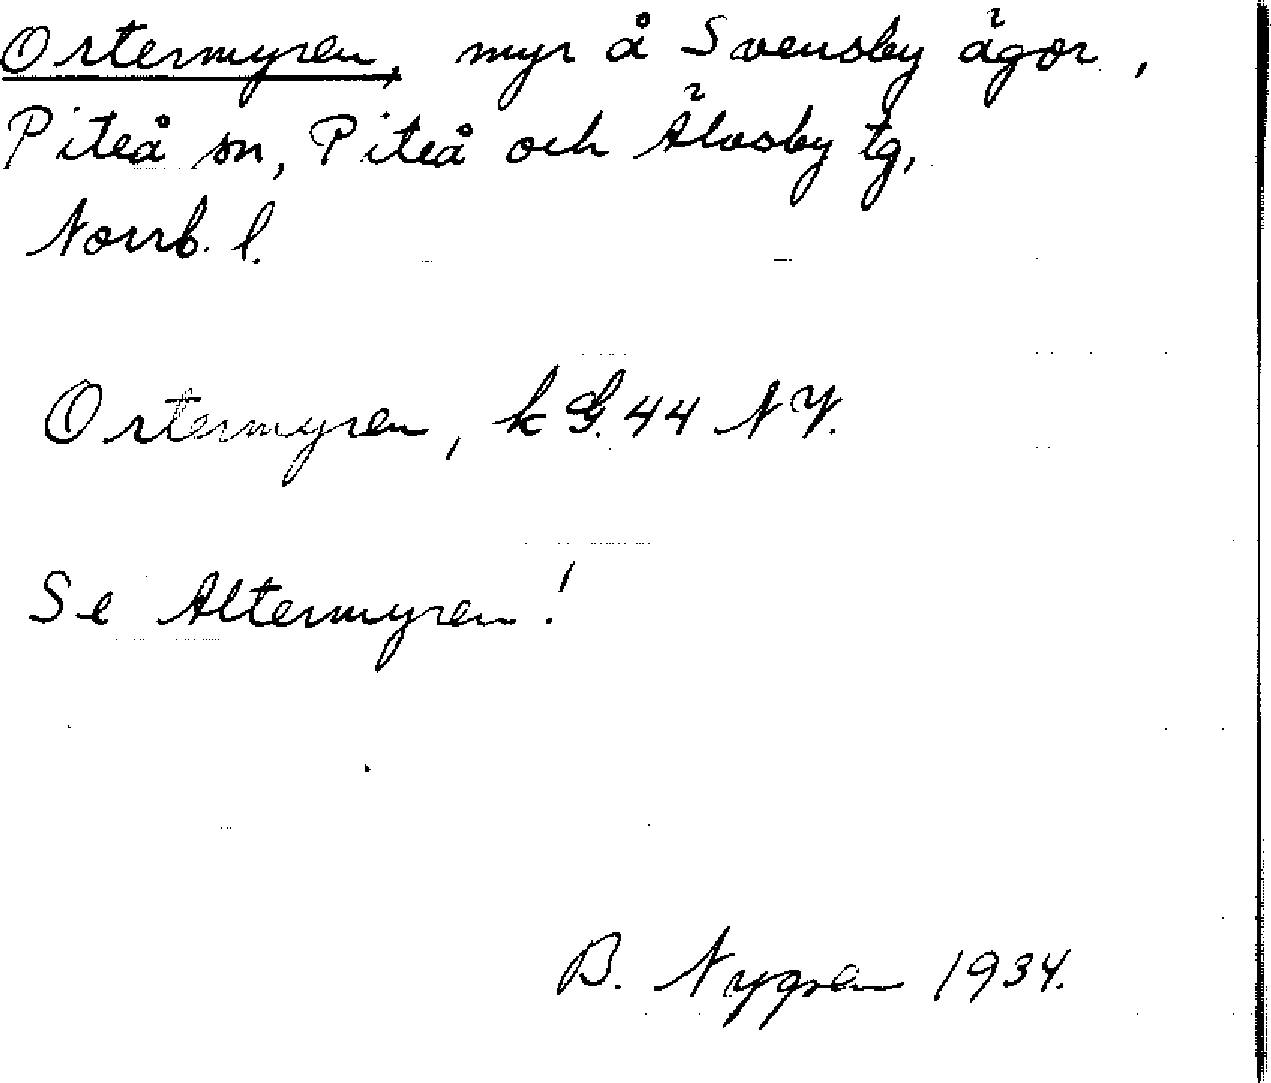 Ortermyren, myr å Svensby ägor,
Piteå sn, Piteå och Älvsby tg,
Norrb. l.
Ortermyren, k G. 44 N V.
Se Altermyren!
B. Nygren 1934.